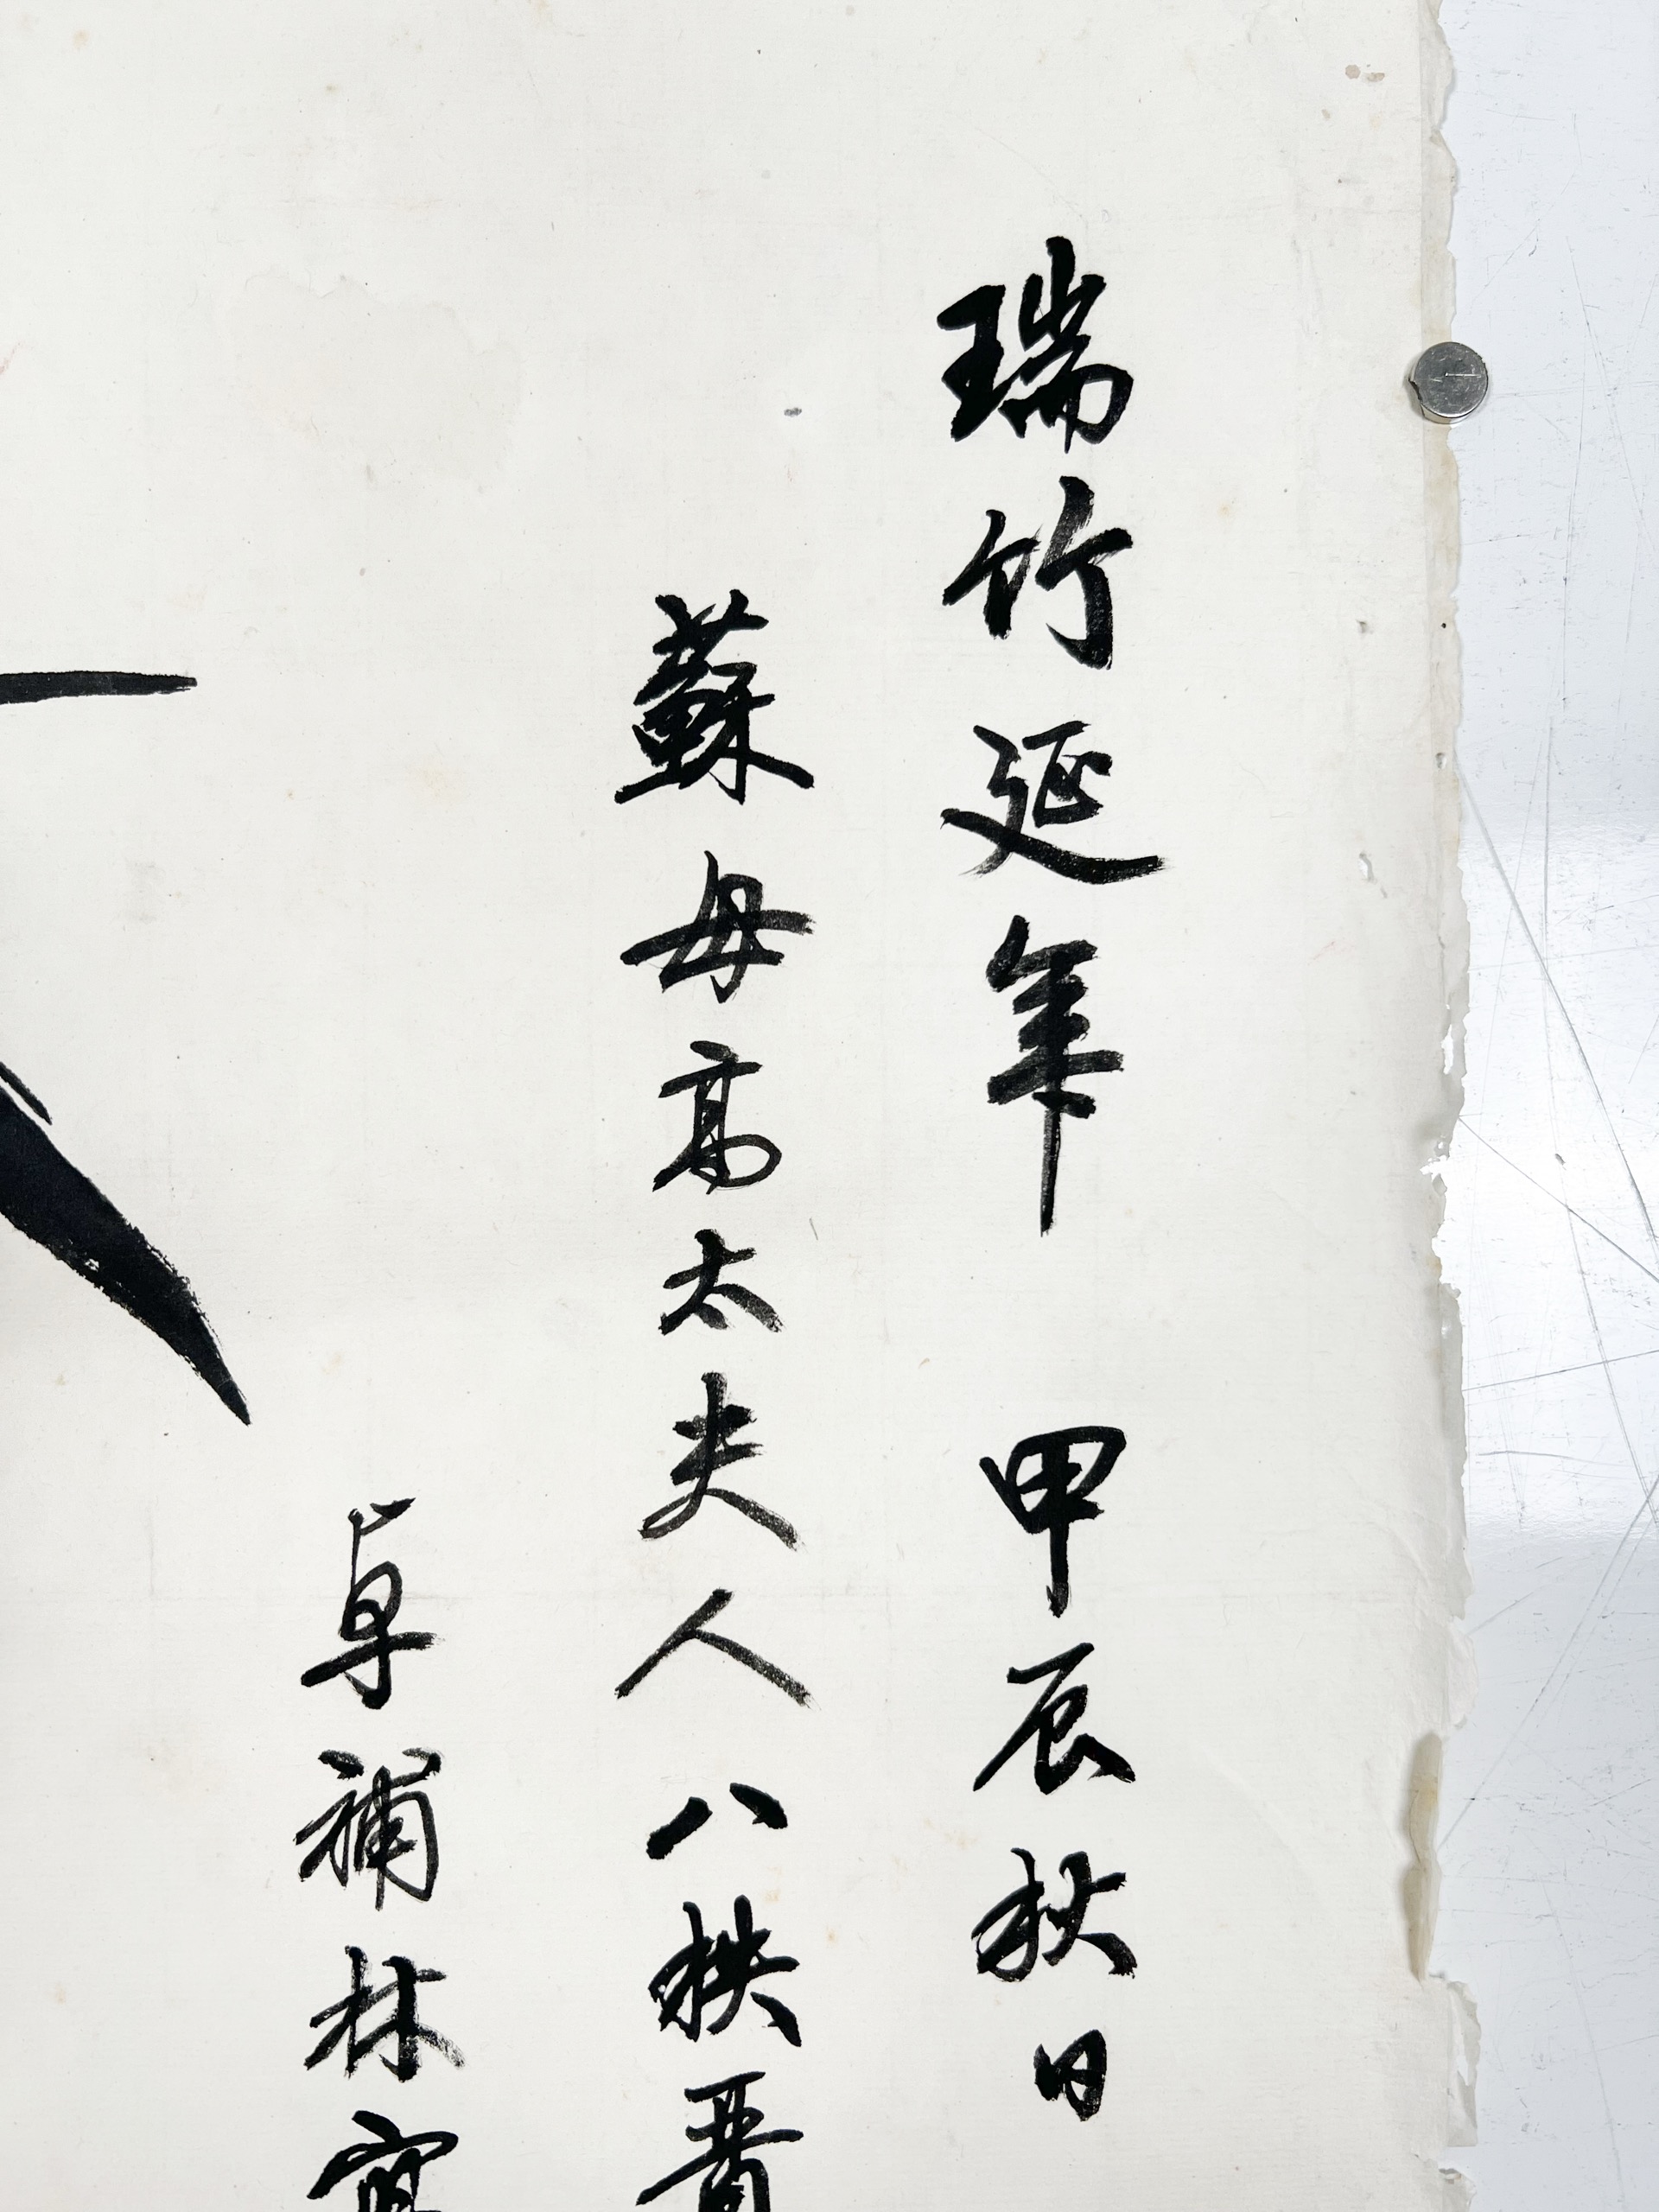 瑞竹延年 甲辰秋日
蘇母高太夫人八秩晋
阜補林寫